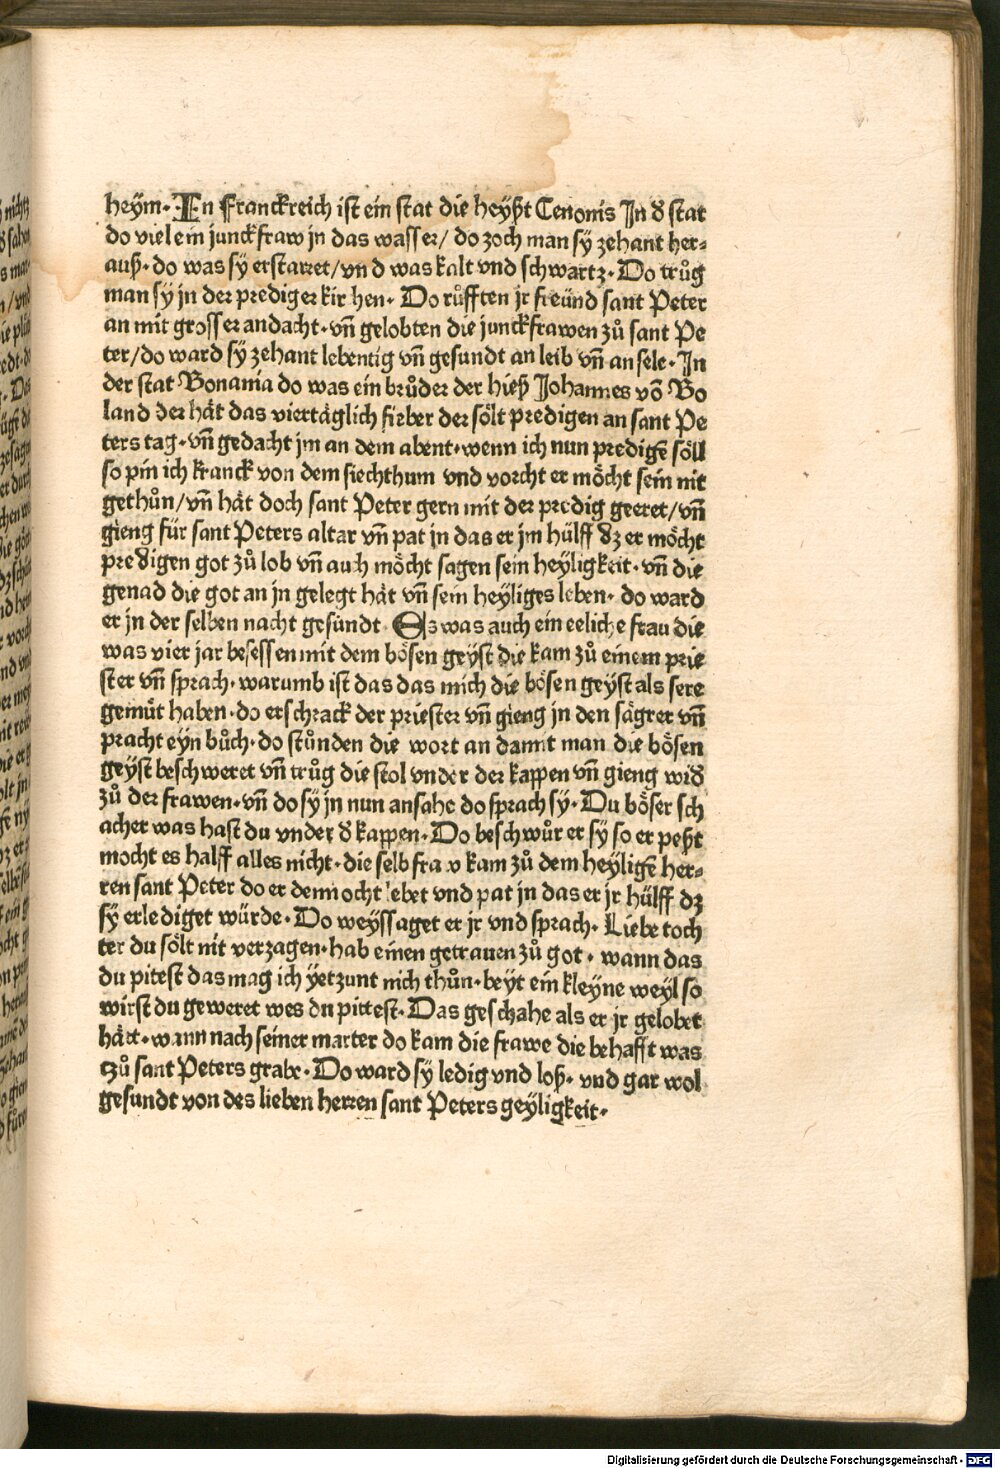 heym. In Franckreich ist ein stat die heyßt Cenonis Jn d̕ stat
do viel ein junckfraw jn das wasser/ do zoch man sy zehant her⸗
auß. do was sy erstarret/vnd was kalt vnd schwartz. Do trůg
man sy jn der prediger kirchen. Do růfften jr freünd sant Peter
an mit grosser andacht. vn̄ gelobten die junckfrawen zů sant Pe
ter/do ward sy zehant lebentig vn̄ gesundt an leib vn̄ an sele. Jn
der stat Bonania do was ein brůder der hieß Johannes vō Bo
land der hät das viertäglich fieber der sölt predigen an sant Pe
ters tag. vn̄ gedacht jm an dem abent. wenn ich nun predigē söll
so pin ich kranck von dem siechthum vnd vorcht er möcht sein nit
gethůn/vn̄ hät doch sant Peter gern mit der predig geeret/vn̄
gieng für sant Peters altar vn̄ pat in das er jm hülff dz er möcht
predigen got zů lob vn̄ auch möcht sagen sein heyligkeit. vn̄ die
genad die got an jn gelegt hät vn̄ sein heyliges leben. do ward
er jn der selben nacht gesundt Es was auch ein eeliche frau die
was vier jar besessen mit dem bösen geyst die kam zů einem prie
ster vn̄ sprach. warumb ist das das mich die bösen geyst als sere
gemüt haben. do erschrack der priester vn̄ gieng jn den sägrer vn̄
pracht eyn bůch. do stůnden die wort an damit man die bösen
geyst beschweret vn̄ trůg die stol vnder der kappen vn̄ gieng wid̕
zů der frawen. vn̄ do sy jn nun ansahe do sprach sy. Du böser sch
acher was hast du vnder d̕ kappen. Do beschwůr er sy so er peßt
mocht es halff alles nicht. die selb fraw kam zů dem heyligē her⸗
ren sant Peter do er dennocht lebet vnd pat jn das er jr hülff dz
sy erlediget würde. Do weyssaget er jr vnd sprach. Liebe toch
ter du sölt nit verzagen. hab einen getrauen zů got. wann das
du pitest das mag ich yetzunt nich thůn. beyt ein kleyne weyl so
wirst du geweret wes du pittest. Das geschahe als er jr gelobet
hät. wann nach seiner marter do kam die frawe die behafft was
tzů sant Peters grabe. Do ward sy ledig vnd loß. vnd gar wol
gesundt von des lieben herren sant Peters geyligkeit.
Digitalisierung gefördert durch die Deutsche Forschungsgemeinschaft - DFG